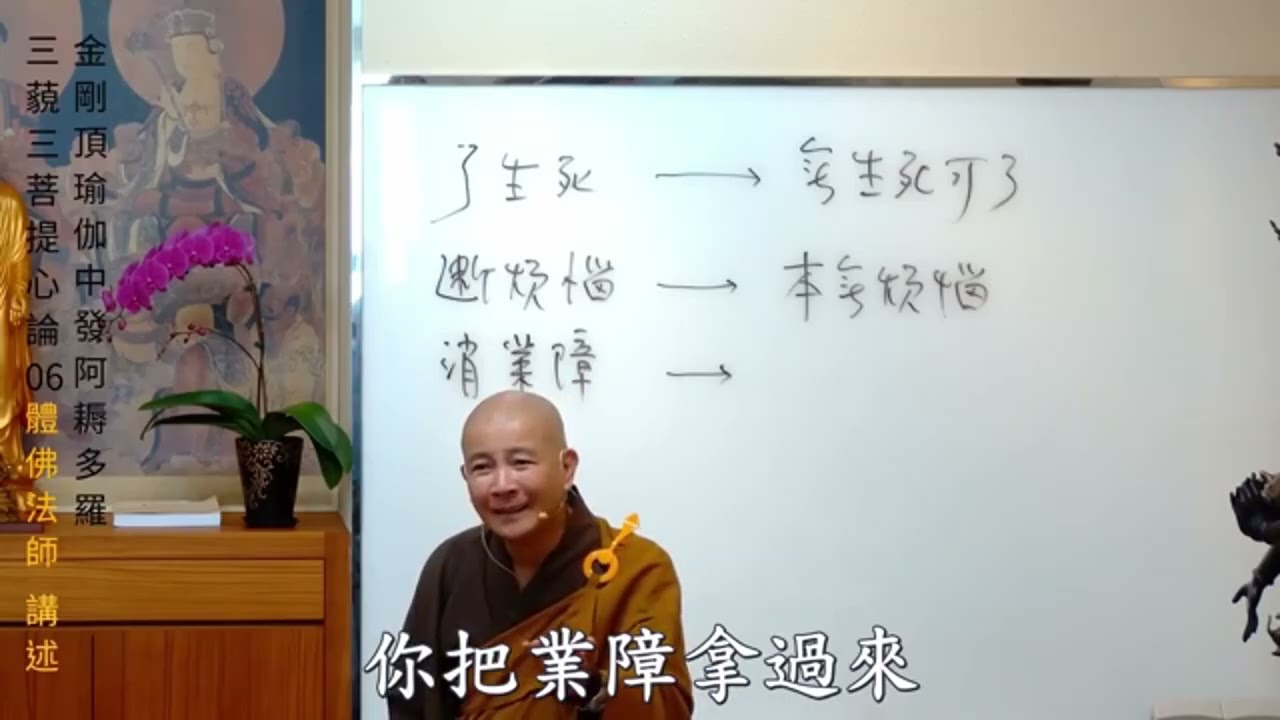 金剛頂瑜伽中發阿耨多羅
三藐三菩提心論06體佛法師 講述
了生死 → 無生死可了
斷煩惱 → 本無煩惱
消業障 →
你把業障拿過來